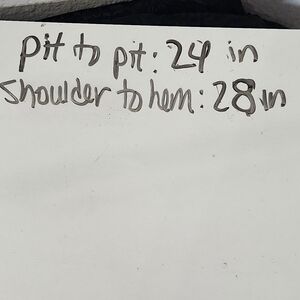 pit to pit: 24 in
shoulder to hem: 28 in